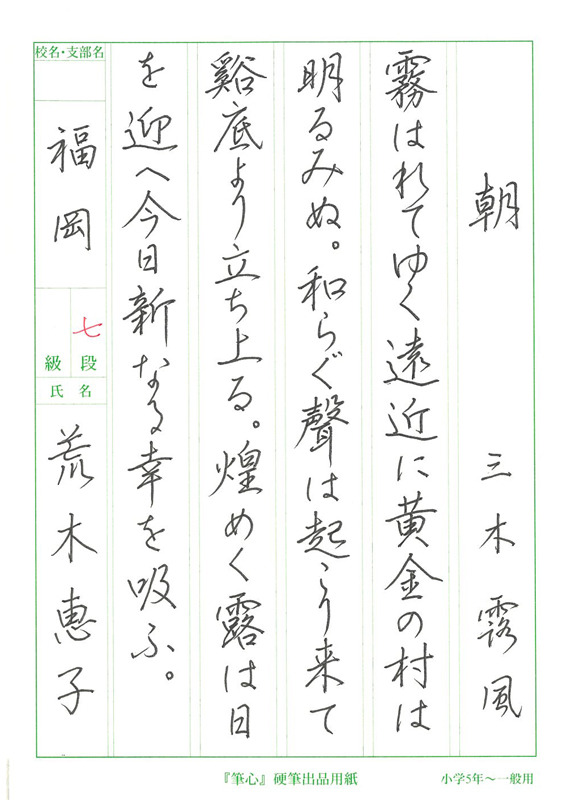 朝　三木露風
霧はれてゆく遠近に黄金の村は
明るみぬ。和らぐ聲は起こり来て
谿底より立ち上る。煌めく露は日
を迎へ今日新なる幸を吸ふ。
校名・支部名
福岡
七段
級
氏名
荒木惠子
『筆心』硬筆出品用紙
小学5年〜一般用